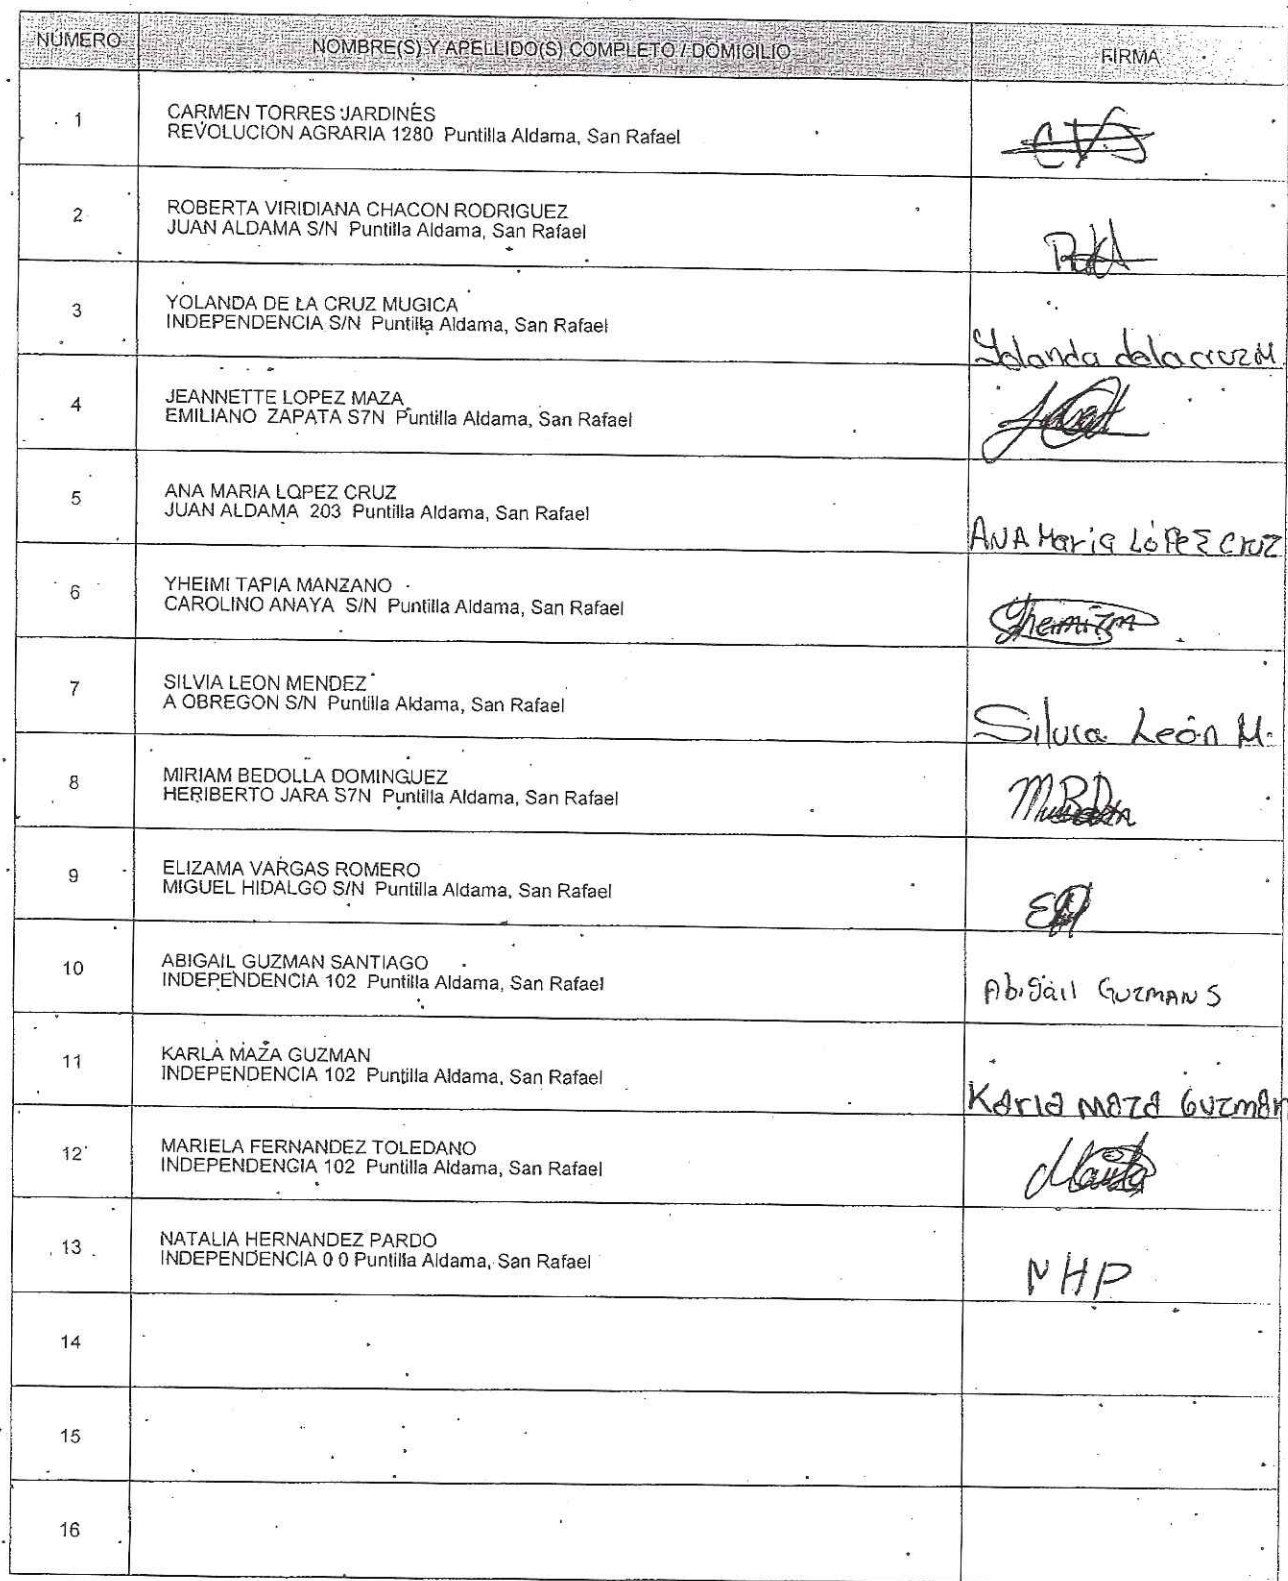 NUMERO NOMBRE(S) Y APELLIDO(S) COMPLETO / DOMICILIO FIRMA
1 CARMEN TORRES JARDINES
REVOLUCION AGRARIA 1280 Puntilla Aldama, San Rafael
2 ROBERTA VIRIDIANA CHACON RODRIGUEZ
JUAN ALDAMA S/N Puntilla Aldama, San Rafael
3 YOLANDA DE LA CRUZ MUGICA
INDEPENDENCIA S/N Puntilla Aldama, San Rafael
Yolanda delacruz M.
4 JEANNETTE LOPEZ MAZA
EMILIANO ZAPATA S7N Puntilla Aldama, San Rafael
5 ANA MARIA LOPEZ CRUZ
JUAN ALDAMA 203 Puntilla Aldama, San Rafael
ANA Maria LóPez Cruz
6 YHEIMI TAPIA MANZANO
CAROLINO ANAYA S/N Puntilla Aldama, San Rafael
7 SILVIA LEON MENDEZ
A OBREGON S/N Puntilla Aldama, San Rafael
Silvia León M.
8 MIRIAM BEDOLLA DOMINGUEZ
HERIBERTO JARA S7N Puntilla Aldama, San Rafael
9 ELIZAMA VARGAS ROMERO
MIGUEL HIDALGO S/N Puntilla Aldama, San Rafael
10 ABIGAIL GUZMAN SANTIAGO
INDEPENDENCIA 102 Puntilla Aldama, San Rafael
Abigail GUZMAN S
11 KARLA MAZA GUZMAN
INDEPENDENCIA 102 Puntilla Aldama, San Rafael
Karla Maza Guzman
12 MARIELA FERNANDEZ TOLEDANO
INDEPENDENCIA 102 Puntilla Aldama, San Rafael
13 NATALIA HERNANDEZ PARDO
INDEPENDENCIA 0 0 Puntilla Aldama, San Rafael
NHP
14
15
16